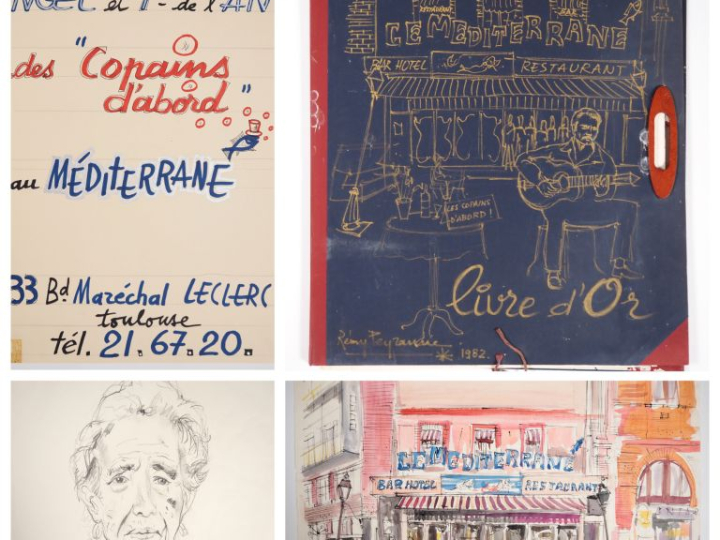 et 1 - de l'AN
des "Copains
d'abord"
au MÉDITERRANE
33 Bd Maréchal LECLERC
toulouse
tél. 21.67.20.
RESTAURANT
BAR
LE MEDITERRANE
BAR HOTEL RESTAURANT
LES COPAINS
D'ABORD!
livre d'Or
1982.
LE MEDITERRANÉ
BAR HOTEL RESTAURANT